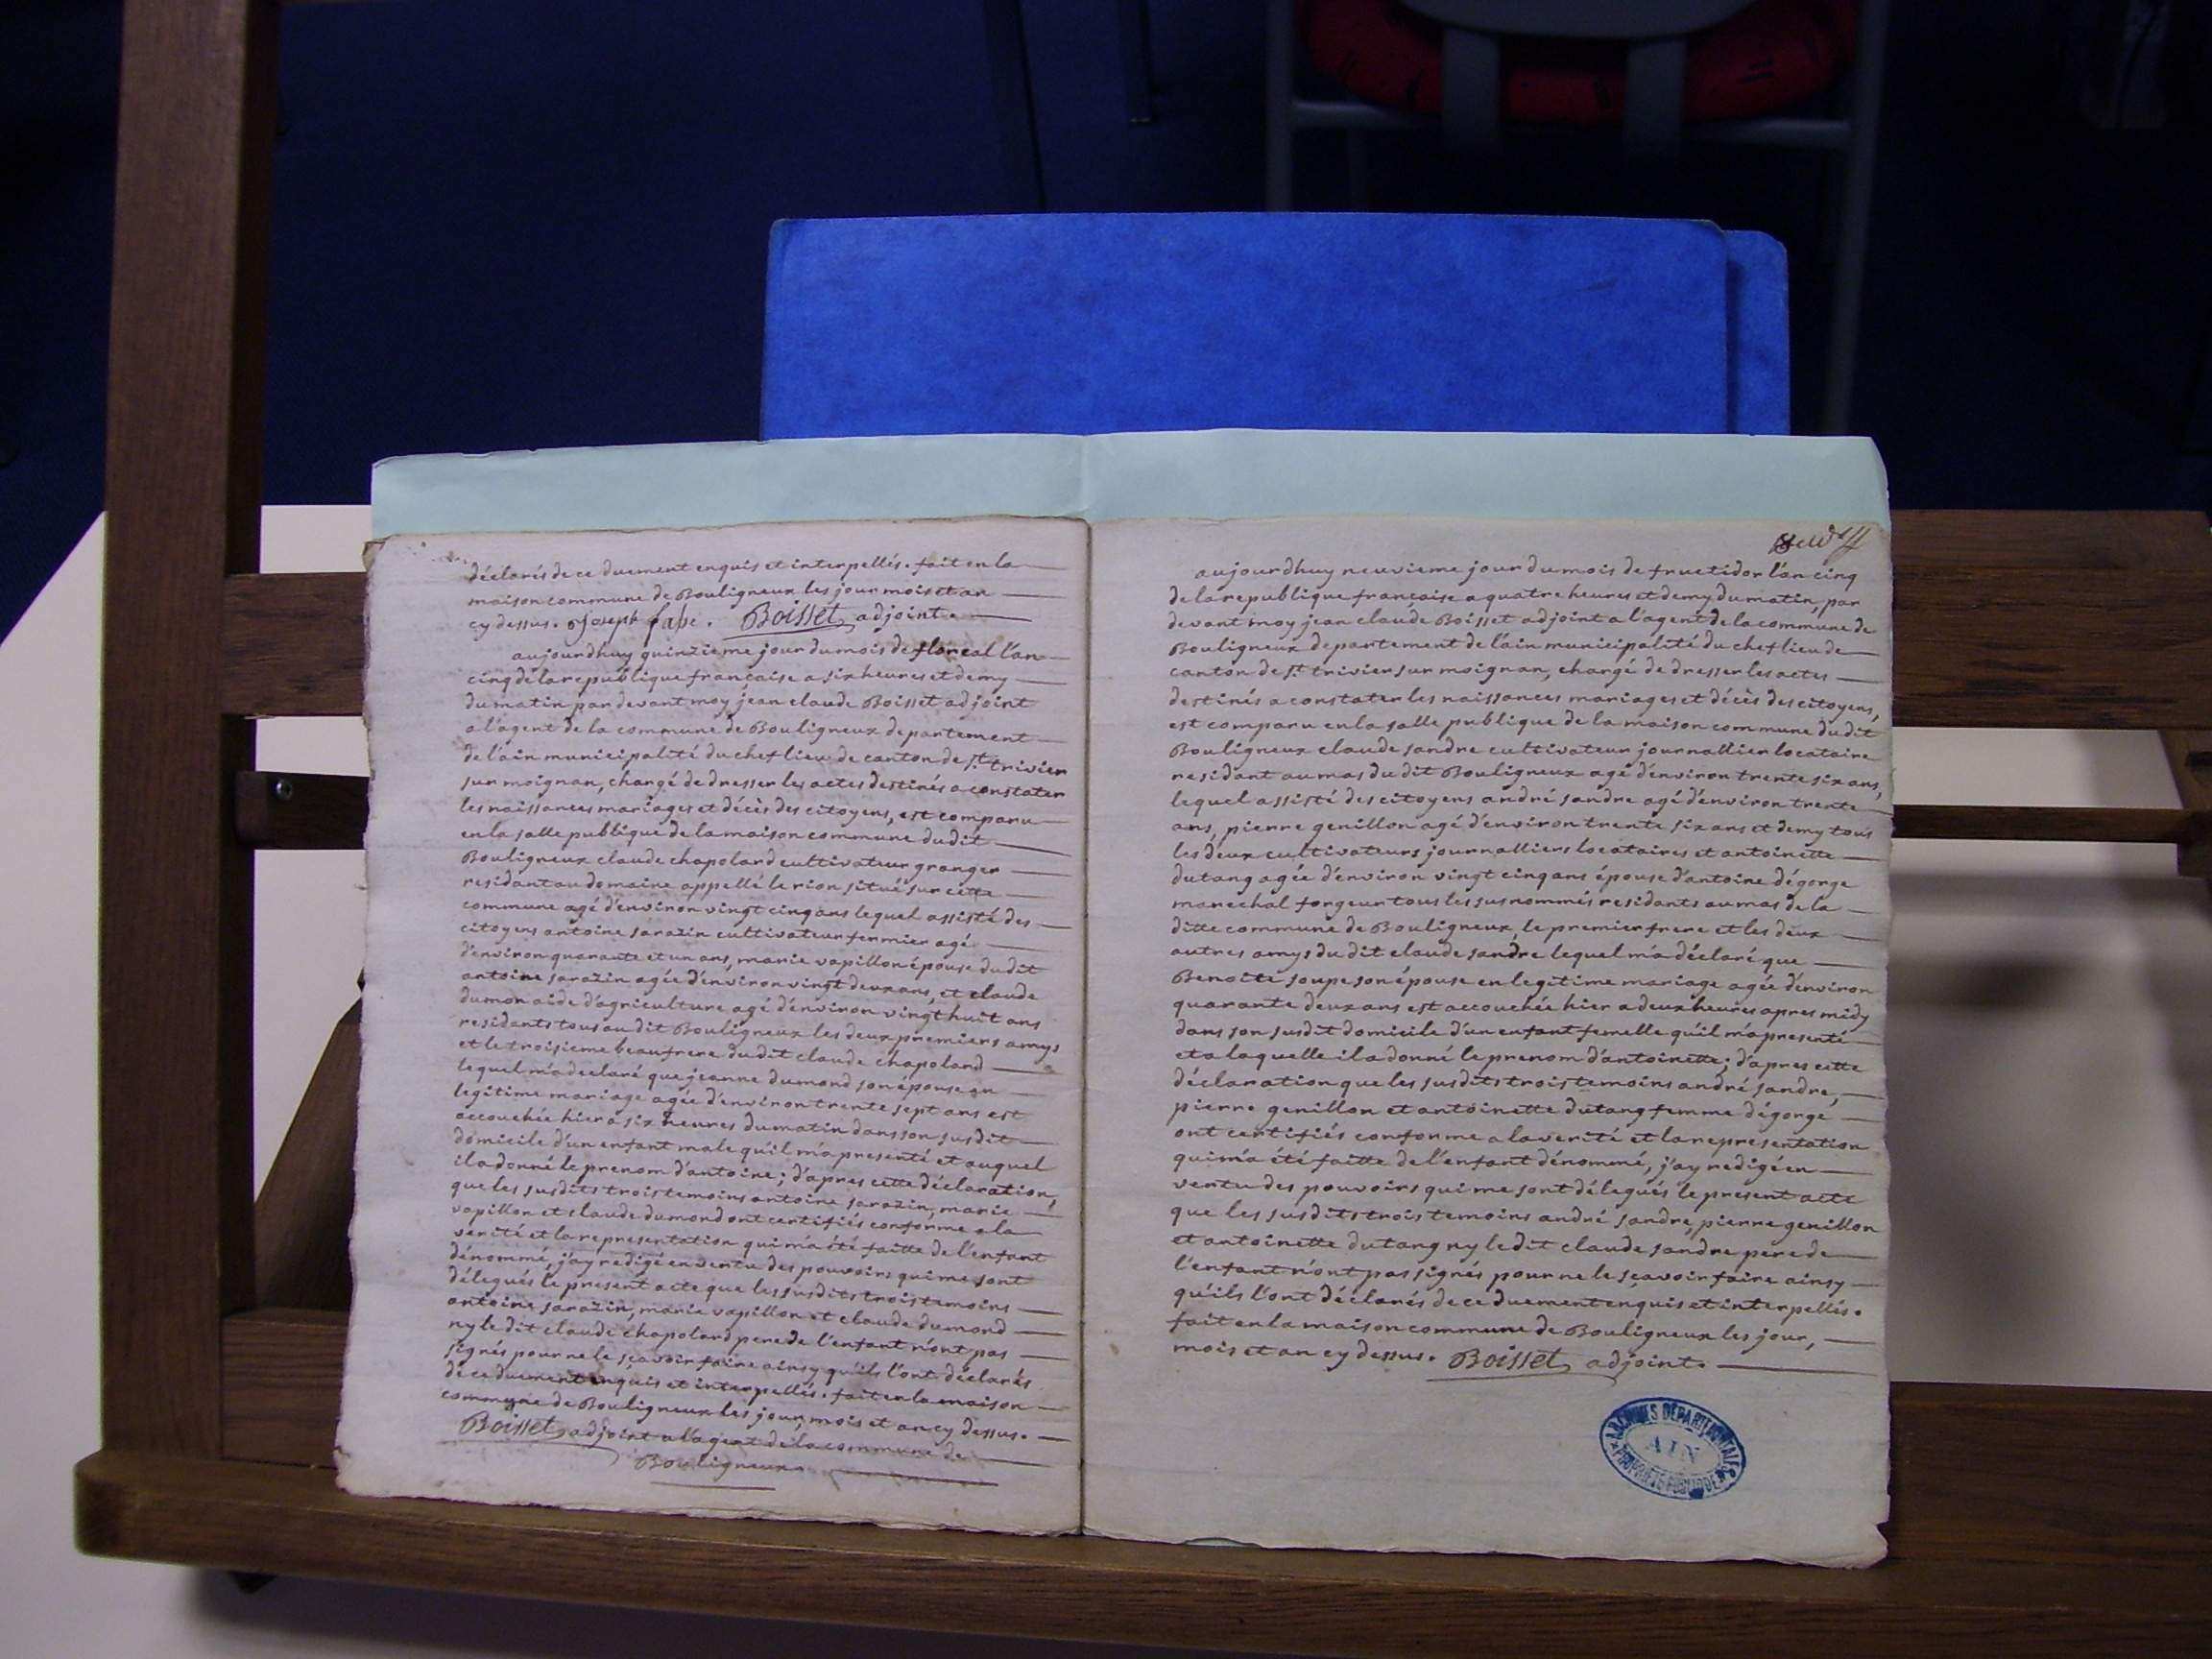 déclarés de ce duement enquis et interpellés. fait en la
maison commune de Bouligneux les jour mois et an
cy dessus. joseph fabe. Boisset adjoint.
aujourdhuy quinzieme jour du mois de floreal l'an
cinq de la république française a six heures et demy
du matin par devant moy jean claude Boisset adjoint
a l'agent de la commune de Bouligneux departement
de l'ain municipalité du chef lieu de canton de st. trivier
sur moignan, chargé de dresser les actes destinés a constater
les naissances mariages et décès des citoyens, est comparu
en la salle publique de la maison commune dudit
Bouligneux claude chapolard cultivateur granger
residant au domaine appellé le rion situé sur cette
commune agé d'environ vingt cinq ans lequel assisté des
citoyens antoine sarazin cultivateur fermier agé
d'environ quarante et un ans, marie vapillon épouse dudit
antoine sarazin agée d'environ vingt deux ans, et claude
dumon aide d'agriculture agé d'environ vingt huit ans
residants tous au dit Bouligneux les deux premiers amys
et le troisieme beaufrere du dit claude chapolard
lequel m'a declaré que jeanne dumond son épouse en
legitime mariage agée d'environ trente sept ans est
accouchée hier a six heures du matin dans son susdit
domicile d'un enfant male qu'il m'a presenté et auquel
il a donné le prenom d'antoine; d'apres cette déclaration,
que les susdits trois temoins antoine sarazin, marie
vapillon et claude dumond ont certifiés conforme a la
verité et la representation qui m'a été faitte de l'enfant
dénommé, j'ay redigé en vertu des pouvoirs qui me sont
délegués le present acte que les susdits trois temoins
antoine sarazin, marie vapillon et claude dumond
ny le dit claude chapolard pere de l'enfant n'ont pas
signés pour ne le sçavoir faire ainsy qu'ils l'ont déclarés
de ce duement enquis et interpellés. fait en la maison
commune de Bouligneux les jour, mois et an cy dessus.
Boisset adjoint a l'agent de la commune de
Bouligneux.
aujourdhuy neuvieme jour du mois de fructidor l'an cinq
de la republique française a quatre heures et demy du matin, par
devant moy jean claude Boisset adjoint a l'agent de la commune de
Bouligneux departement de l'ain municipalité du chef lieu de
canton de st. trivier sur moignan, chargé de dresser les actes
destinés a constater les naissances mariages et décès des citoyens,
est comparu en la salle publique de la maison commune dudit
Bouligneux claude sandre cultivateur journallier locataire
residant au mas du dit Bouligneux agé d'environ trente six ans,
lequel assisté des citoyens andré sandre agé d'environ trente
ans, pierre genillon agé d'environ trente six ans et demy tous
les deux cultivateurs journalliers locataires et antoinette
dutang agée d'environ vingt cinq ans épouse d'antoine dégorge
marechal forgeur tous les susnommés residants au mas de la
ditte commune de Bouligneux, le premier frere et les deux
autres amys du dit claude sandre lequel m'a déclaré que
Benoite soupe son épouse en legitime mariage agée d'environ
quarante deux ans est accouchée hier a deux heures apres midy
dans son susdit domicile d'un enfant femelle qu'il m'a presenté
et a laquelle il a donné le prenom d'antoinette; d'apres cette
déclaration que les susdits trois temoins andré sandre,
pierre genillon et antoinette dutang femme dégorge
ont certifiés conforme a la verité et la representation
qui m'a été faitte de l'enfant dénommé, j'ay redigé en
vertu des pouvoirs qui me sont délegués le present acte
que les susdits trois temoins andré sandre, pierre genillon
et antoinette dutang ny ledit claude sandre pere de
l'enfant n'ont pas signés pour ne le sçavoir faire ainsy
qu'ils l'ont déclarés de ce duement enquis et interpellés.
fait en la maison commune de Bouligneux les jour,
mois et an cy dessus. Boisset adjoint.
ARCHIVES DÉPARTEMENTALES
AIN
PROPRIÉTÉ PUBLIQUE